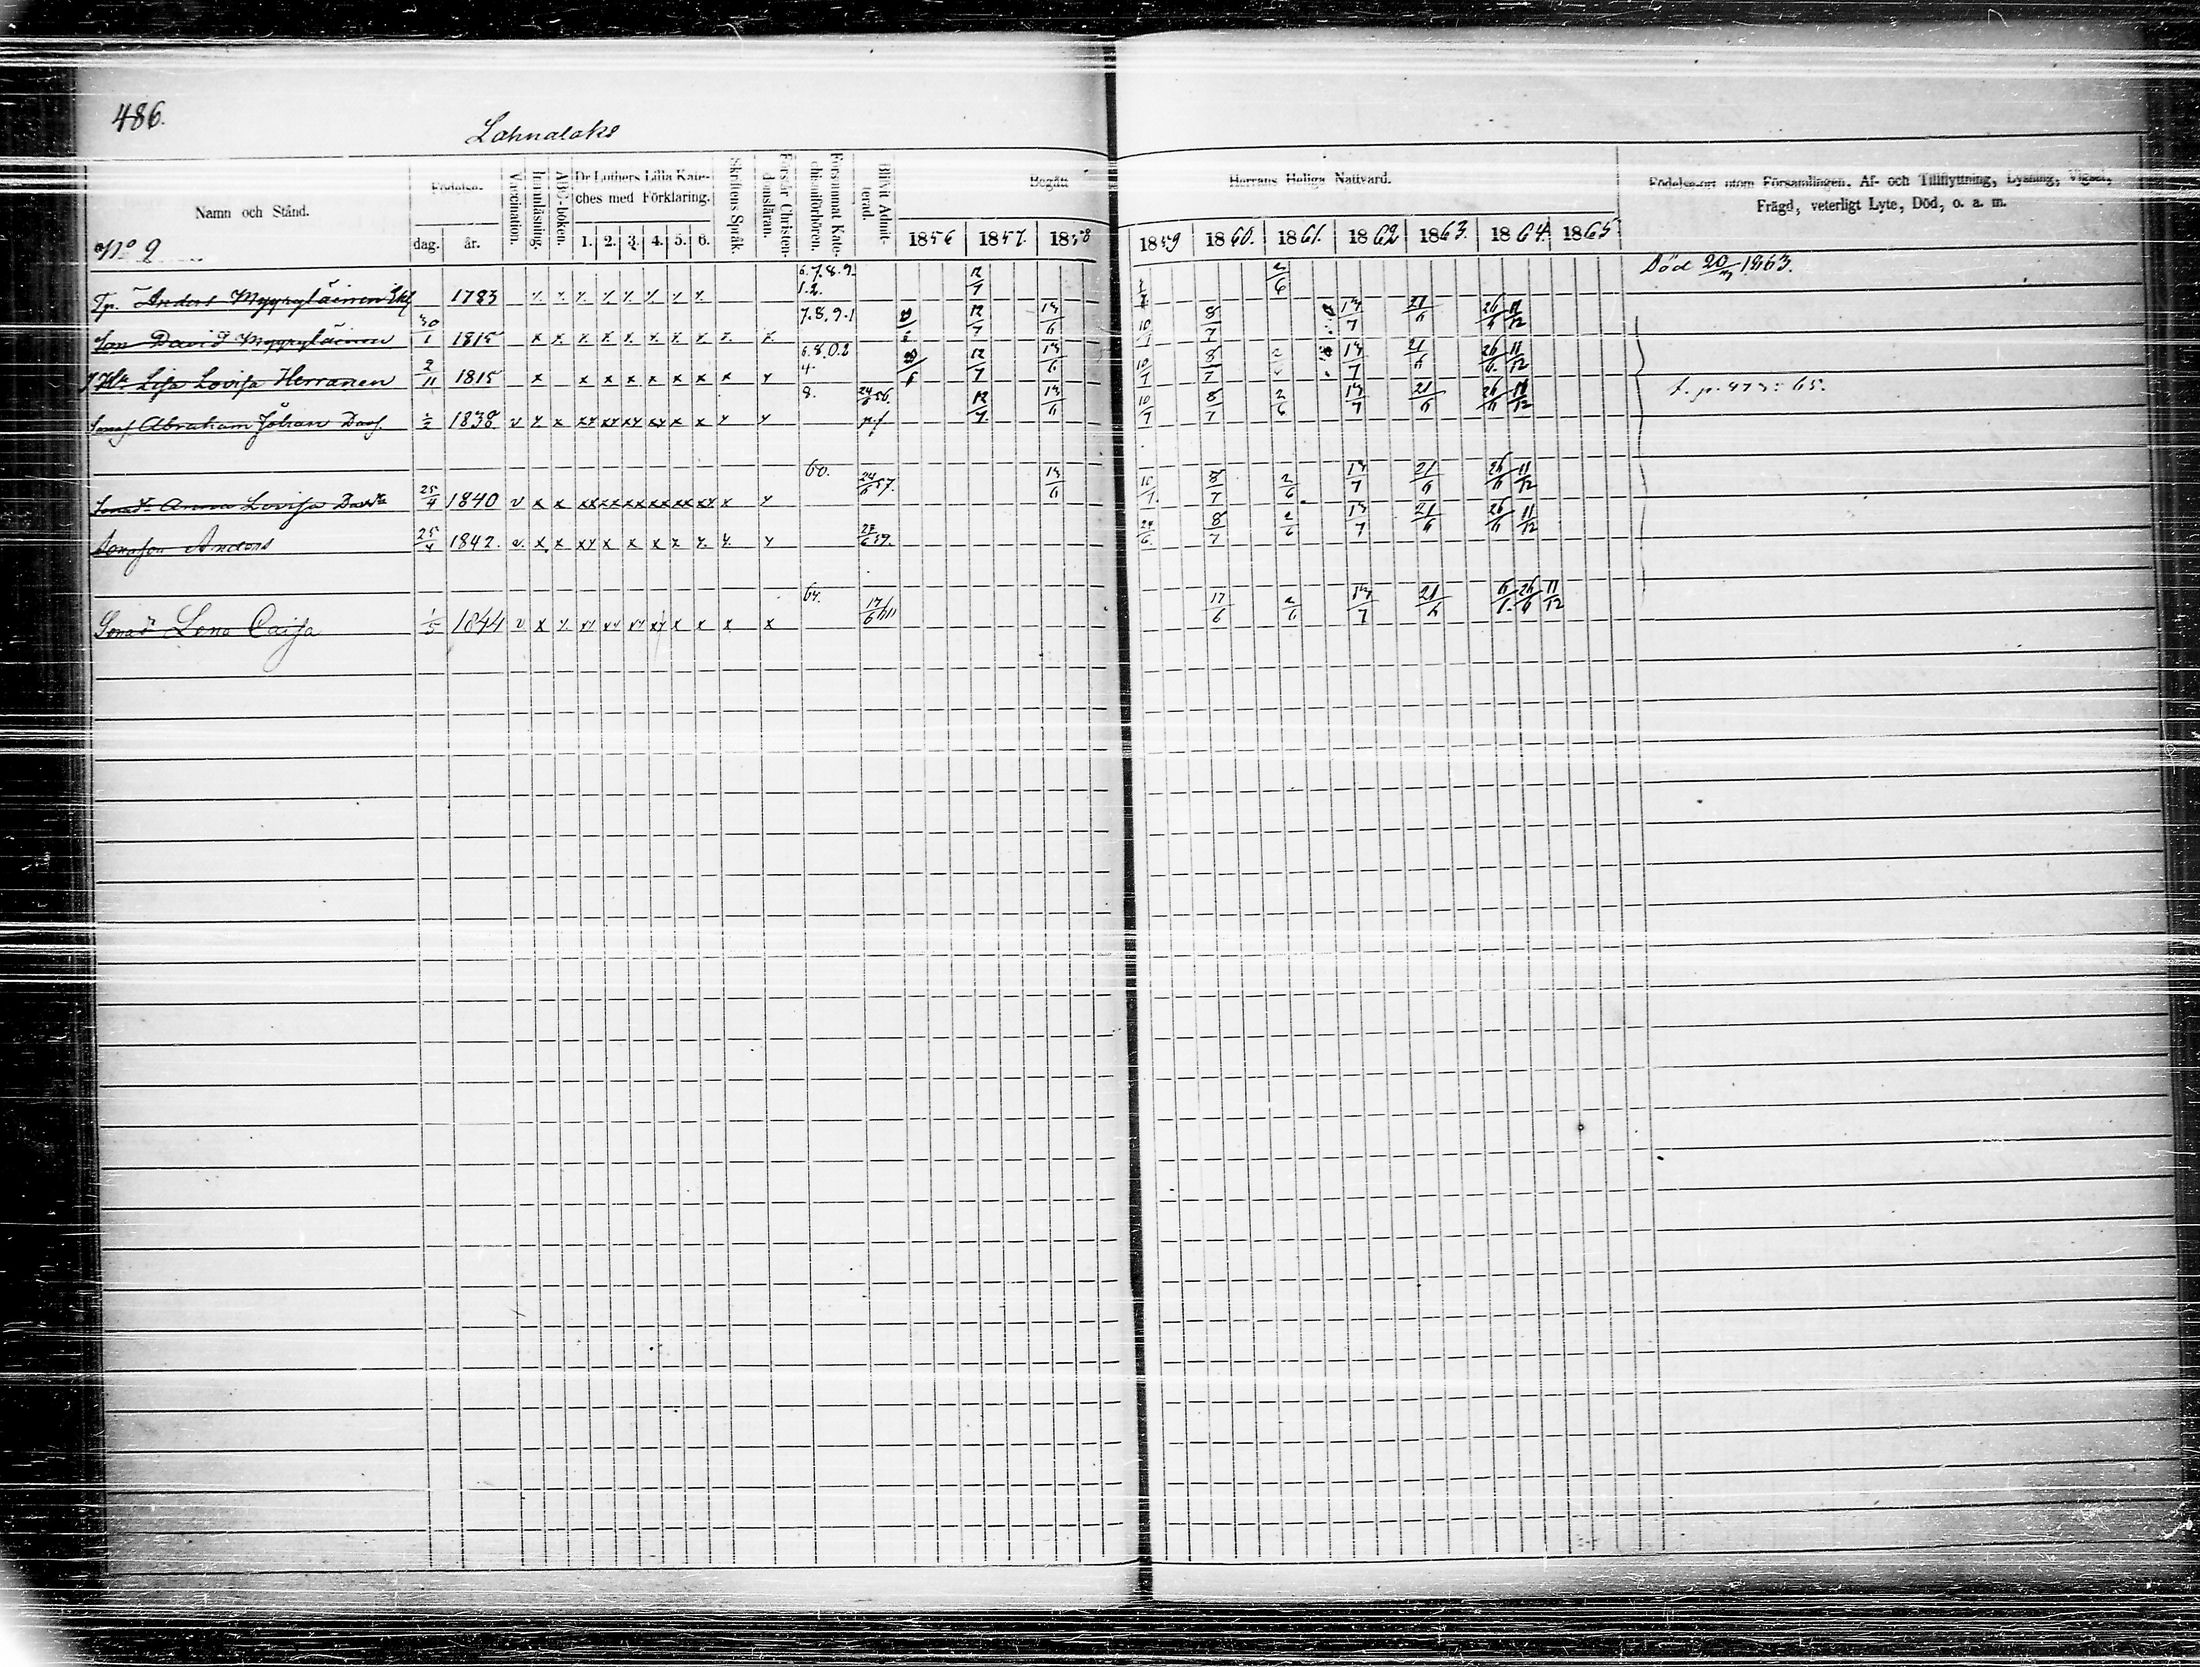 486.
Lahnalaks
Namn och Stånd.
Födelse-
dag. år.
Vaccination.
Innanläsning.
ABC-boken.
Dr Luthers Lilla Kate-
ches med Förklaring.
1. 2. 3. 4. 5. 6.
Skriftens Språk.
Förstår Christen-
domsläran.
Försummat Kate-
chismiförhören.
Blifvit Admit-
terad.
Begått Herrans Heliga Nattvard.
1856 1857. 1858 1859 1860. 1861. 1862 1863. 1864. 1865
Födelse-ort utom Församlingen, Af- och Tillflyttning, Lysning, Vigsel,
Frägd, veterligt Lyte, Död, o. a. m.
No 2
6.7.8.9.
1.2. 12/7 2/6 Död 20/3 1863.
Tp. Anders Myyryläinen 1783 x x x x x x x x
7.8.9.1 12/7 13/6 10/7 8/7 13/7 21/6 26/6 11/12
Son David Myyryläinen 30/1 1815 x x x x x x x x x x
6.8.02
4. 12/7 13/6 10/7 8/7 13/7 21/6 26/6 11/12
Lisa Lovisa Herranen 2/11 1815 x x x x x x x x x
8. 24/6 56. 12/7 13/6 10/7 8/7 2/6 13/7 21/6 26/6 11/12 t. p. 473: 65.
Abraham Johan Davs. 1838 v x x xx xx xx xx x x x x
60. 24/6 57. 13/6 8/7 2/6 13/7 21/6 26/6 11/12
Anna Lovisa 25/4 1840 v x x xx xx xx xx xx xx x x
27/6 59. 8/7 2/6 13/7 21/6 26/6 11/12
Sonason Anders 25/4 1842. v. x x xx x x x x x x x
64. 17/6 17/6 2/6 13/7 21/6 26/6 11/12
Lena Caisa 1/5 1844 v x x xx xx xx xx x x x x